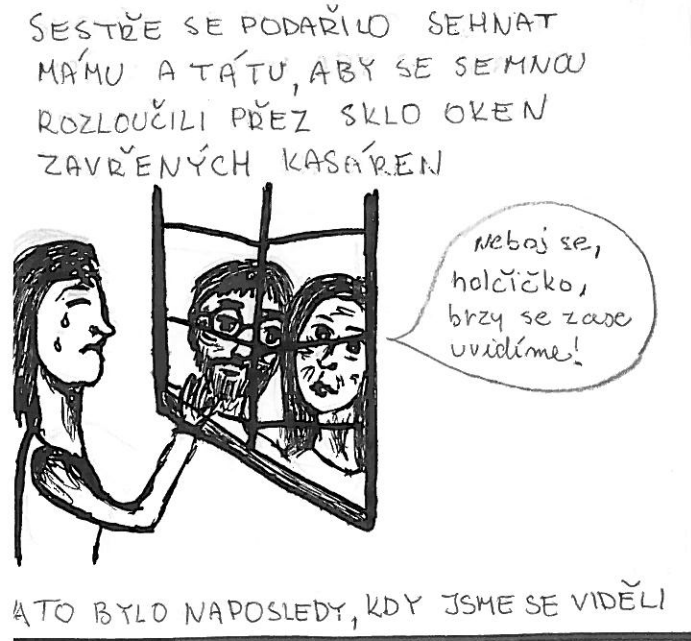 SESTŘE SE PODAŘILO SEHNAT
MÁMU A TÁTU, ABY SE SEMNOU
ROZLOUČILI PŘEZ SKLO OKEN
ZAVŘENÝCH KASÁREN
Neboj se,
holčičko,
brzy se zase
uvidíme!
A TO BYLO NAPOSLEDY, KDY JSME SE VIDĚLI